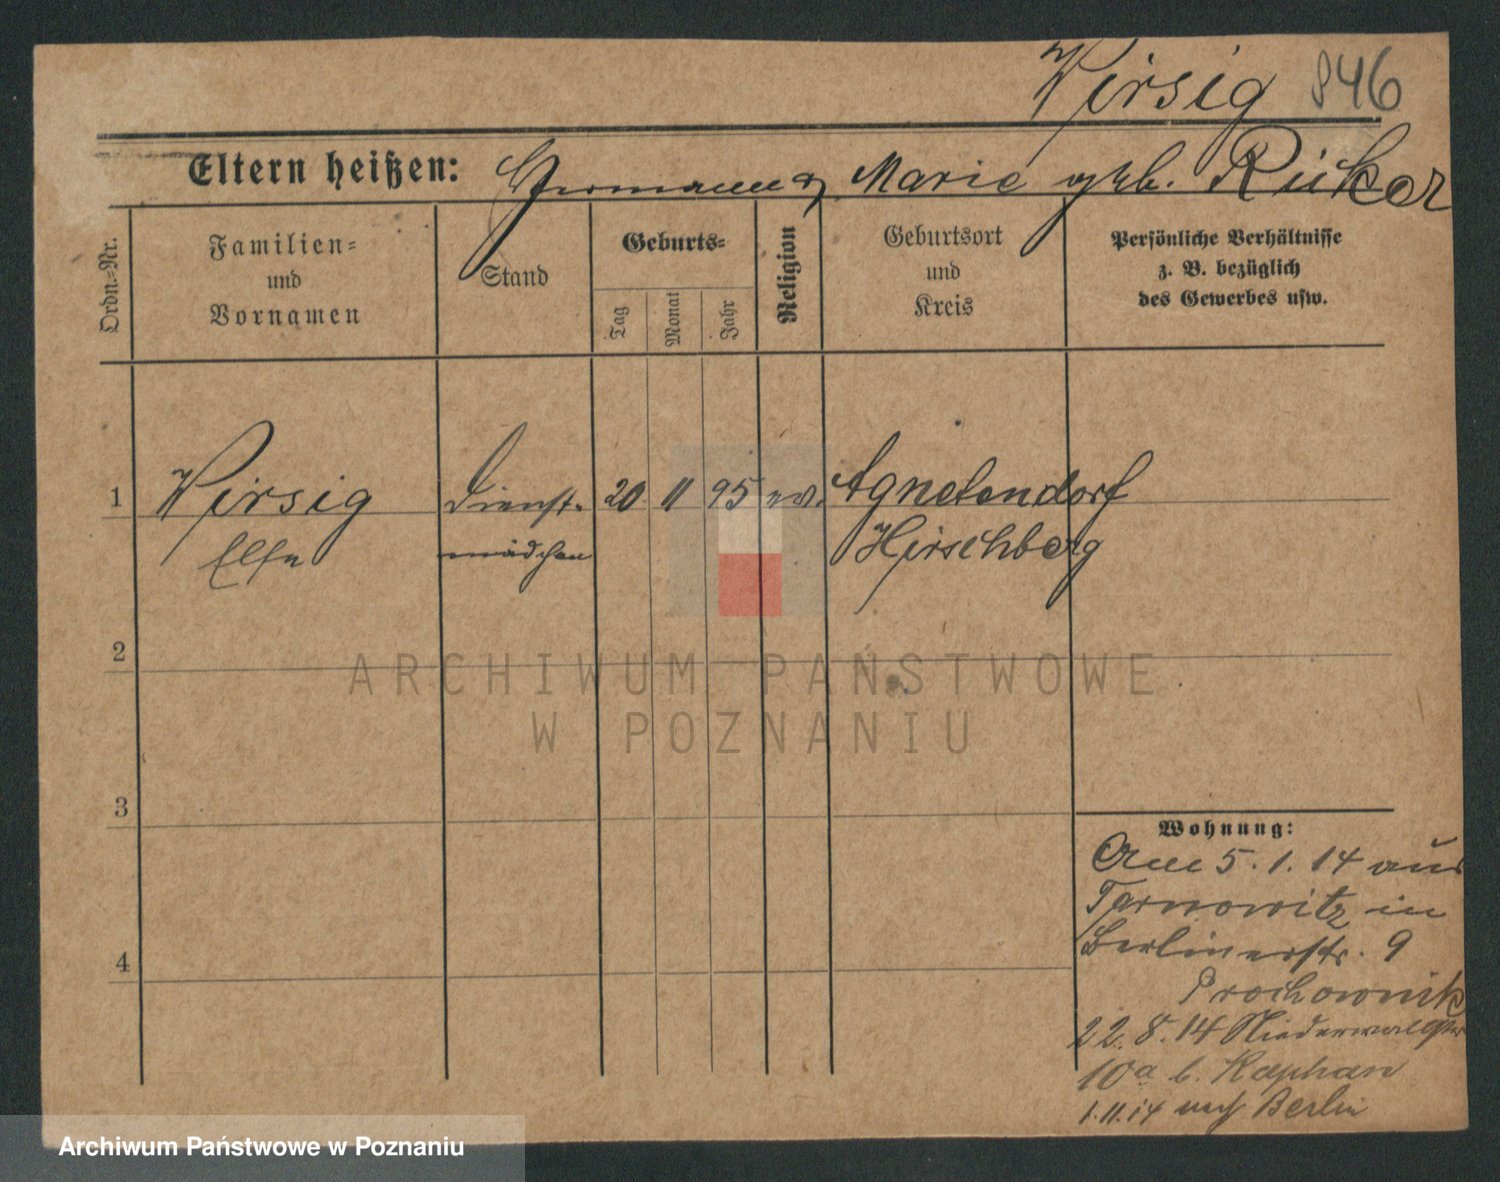 Wirsig 846
Eltern heißen: Hermann & Marie geb. Rücker
Ordn.-Nr.
Familien-
und
Vornamen
Stand
Geburts-
Tag
Monat
Jahr
Religion
Geburtsort
und
Kreis
Persönliche Verhältnisse
z. B. bezüglich
des Gewerbes usw.
1 Wirsig Dienst- 20 11 95 ev. Agnetendorf
Else mädchen Hirschberg
2
3
4
Wohnung:
Am 5.1.14 aus
Tarnowitz in
Berlinerstr. 9
Prochownik
22.8.14 Niederwallstr
10a b. Kaphan
1.11.14 nach Berlin
ARCHIWUM PAŃSTWOWE
W POZNANIU
Archiwum Państwowe w Poznaniu